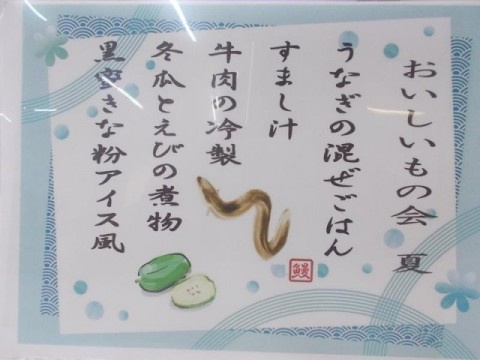 おいしいもの会 夏
うなぎの混ぜごはん
すまし汁
牛肉の冷製
冬瓜とえびの煮物
黒蜜きな粉アイス風
鰻